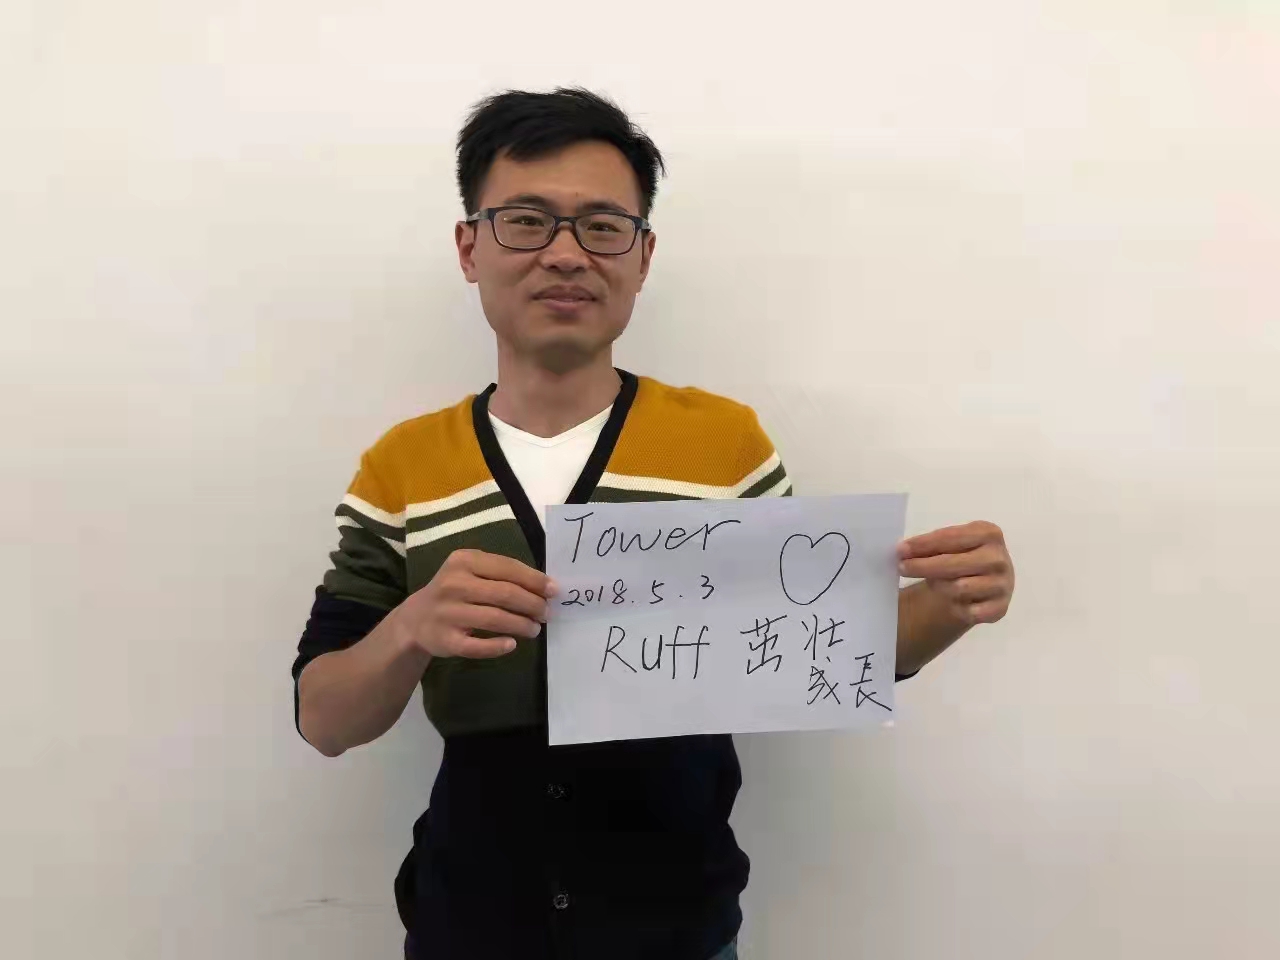 Tower
2018.5.3
Ruff 茁壮
成長